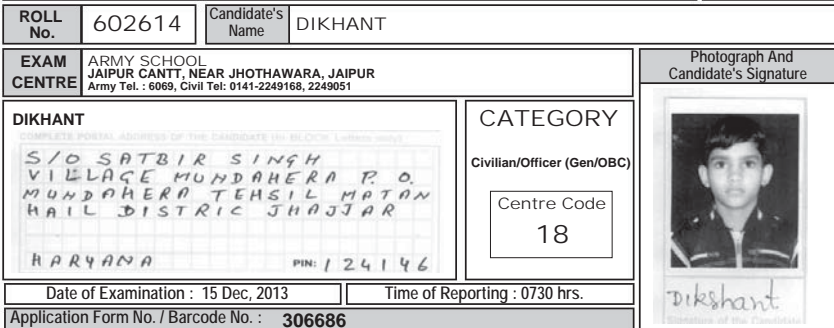 ROLL No. 602614 Candidate's Name DIKHANT
EXAM CENTRE
ARMY SCHOOL
JAIPUR CANTT, NEAR JHOTHAWARA, JAIPUR
Army Tel. : 6069, Civil Tel: 0141-2249168, 2249051
Photograph And
Candidate's Signature
DIKHANT
COMPLETE POSTAL ADDRESS OF THE CANDIDATE (In BLOCK Letters only)
S/O SATBIR SINGH
VILLAGE MUNDAHERA P. O.
MUNDAHERA TEHSIL MATAN
HAIL DISTRIC JHAJJAR
HARYANA PIN: 124146
CATEGORY
Civilian/Officer (Gen/OBC)
Centre Code
18
Dikshant
Signature of the Candidate
Date of Examination : 15 Dec, 2013 Time of Reporting : 0730 hrs.
Application Form No. / Barcode No. : 306686